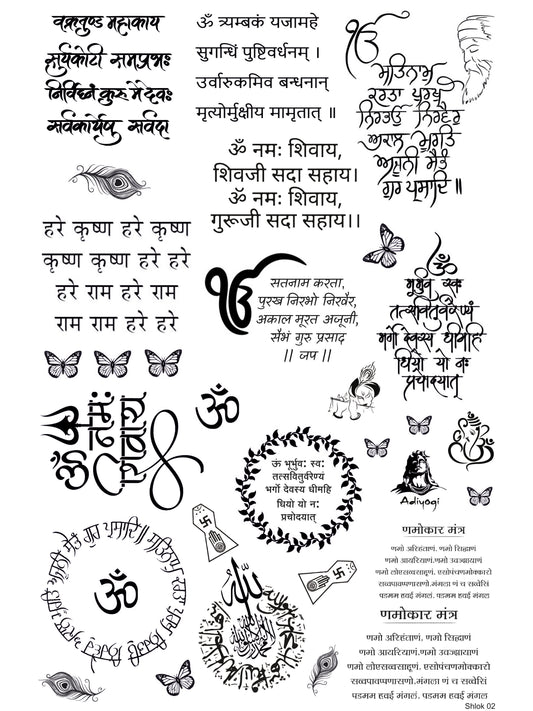 वक्रतुण्ड महाकाय
सूर्यकोटी समप्रभः
निर्विघ्नं कुरु मे देवः
सर्वकार्येषु सर्वदा
ॐ त्र्यम्बकं यजामहे
सुगन्धिं पुष्टिवर्धनम् ।
उर्वारुकमिव बन्धनान्
मृत्योर्मुक्षीय मामृतात् ॥
ॐ नमः शिवाय,
शिवजी सदा सहाय।
ॐ नमः शिवाय,
गुरूजी सदा सहाय।।
ੴ
ਸਤਿਨਾਮੁ
ਕਰਤਾ ਪੁਰਖੁ
ਨਿਰਭਉ ਨਿਰਵੈਰੁ
ਅਕਾਲ ਮੂਰਤਿ
ਅਜੂਨੀ ਸੈਭੰ
ਗੁਰ ਪ੍ਰਸਾਦਿ ॥
हरे कृष्ण हरे कृष्ण
कृष्ण कृष्ण हरे हरे
हरे राम हरे राम
राम राम हरे हरे
ੴ
सतनाम करता,
पुरख निरभो निरवैर,
अकाल मूरत अजूनी,
सैभं गुरु प्रसाद
|| जप ||
ॐ
भूर्भुव स्वः
तत्सवितुर्वरेण्यं
भर्गो देवस्य धीमहि
धियो यो नः
प्रचोदयात्
ॐ नमः
शिवाय
ॐ
ऊं भूर्भुवः स्वः
तत्सवितुर्वरेण्यं
भर्गो देवस्य धीमहि
धियो यो नः
प्रचोदयात्
Adiyogi
ॐ
णमोकार मंत्र
णमो अरिहंताणं. णमो सिद्धाणं
णमो आयरियाणं.णमो उवज्झायाणं
णमो लोएसव्वसाहूणं. एसोपंचणमोक्कारो
सव्वपावप्पणासणो.मंगला णं च सव्वेसिं
पडमम हवई मंगलं. पडमम हवई मंगल
णमोकार मंत्र
णमो अरिहंताणं. णमो सिद्धाणं
णमो आयरियाणं.णमो उवज्झायाणं
णमो लोएसव्वसाहूणं. एसोपंचणमोक्कारो
सव्वपावप्पणासणो.मंगला णं च सव्वेसिं
पडमम हवई मंगलं. पडमम हवई मंगल
Shlok 02